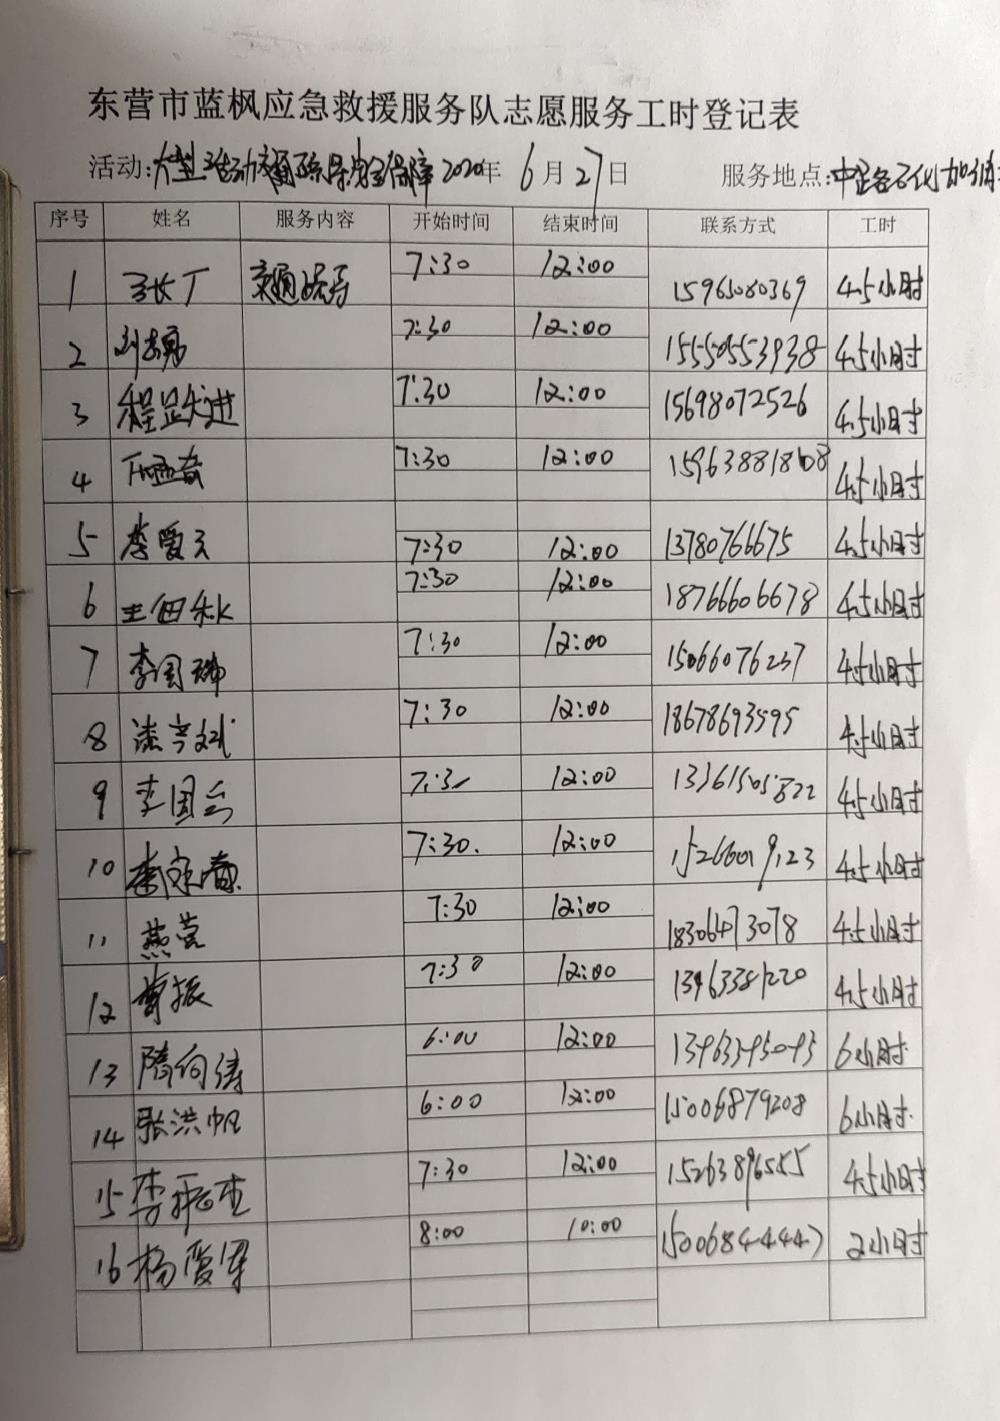 东营市蓝枫应急救援服务队志愿服务工时登记表
活动:大型活动交通疏导安全保障2020年 6月27日 服务地点:中石化加油
序号 姓名 服务内容 开始时间 结束时间 联系方式 工时
1 交通 7:30 12:00 15965080369 4.5小时
2 7:30 12:00 15550553938 4.5小时
3 程显进 7:30 12:00 15698072526 4.5小时
4 7:30 12:00 4.5小时
5 李爱 7:30 12:00 13780766675 4.5小时
6 王 秋 7:30 12:00 18766606678 4.5小时
7 李国瑞 7:30 12:00 15066076237 4.5小时
8 7:30 12:00 18678693595 4.5小时
9 李国 7:3 12:00 13361505822 4.5小时
10 7:30. 12:00 15266019123 4.5小时
11 燕莹 7:30 12:00 18306473078 4.5小时
12 振 7:30 12:00 4.5小时
13 隋向涛 6:00 12:00 6小时.
14 张洪帆 6:00 12:00 15006879208 6小时.
15 李 7:30 12:00 15263896555 4.5小时
16 杨爱军 8:00 10:00 15006844447 2小时